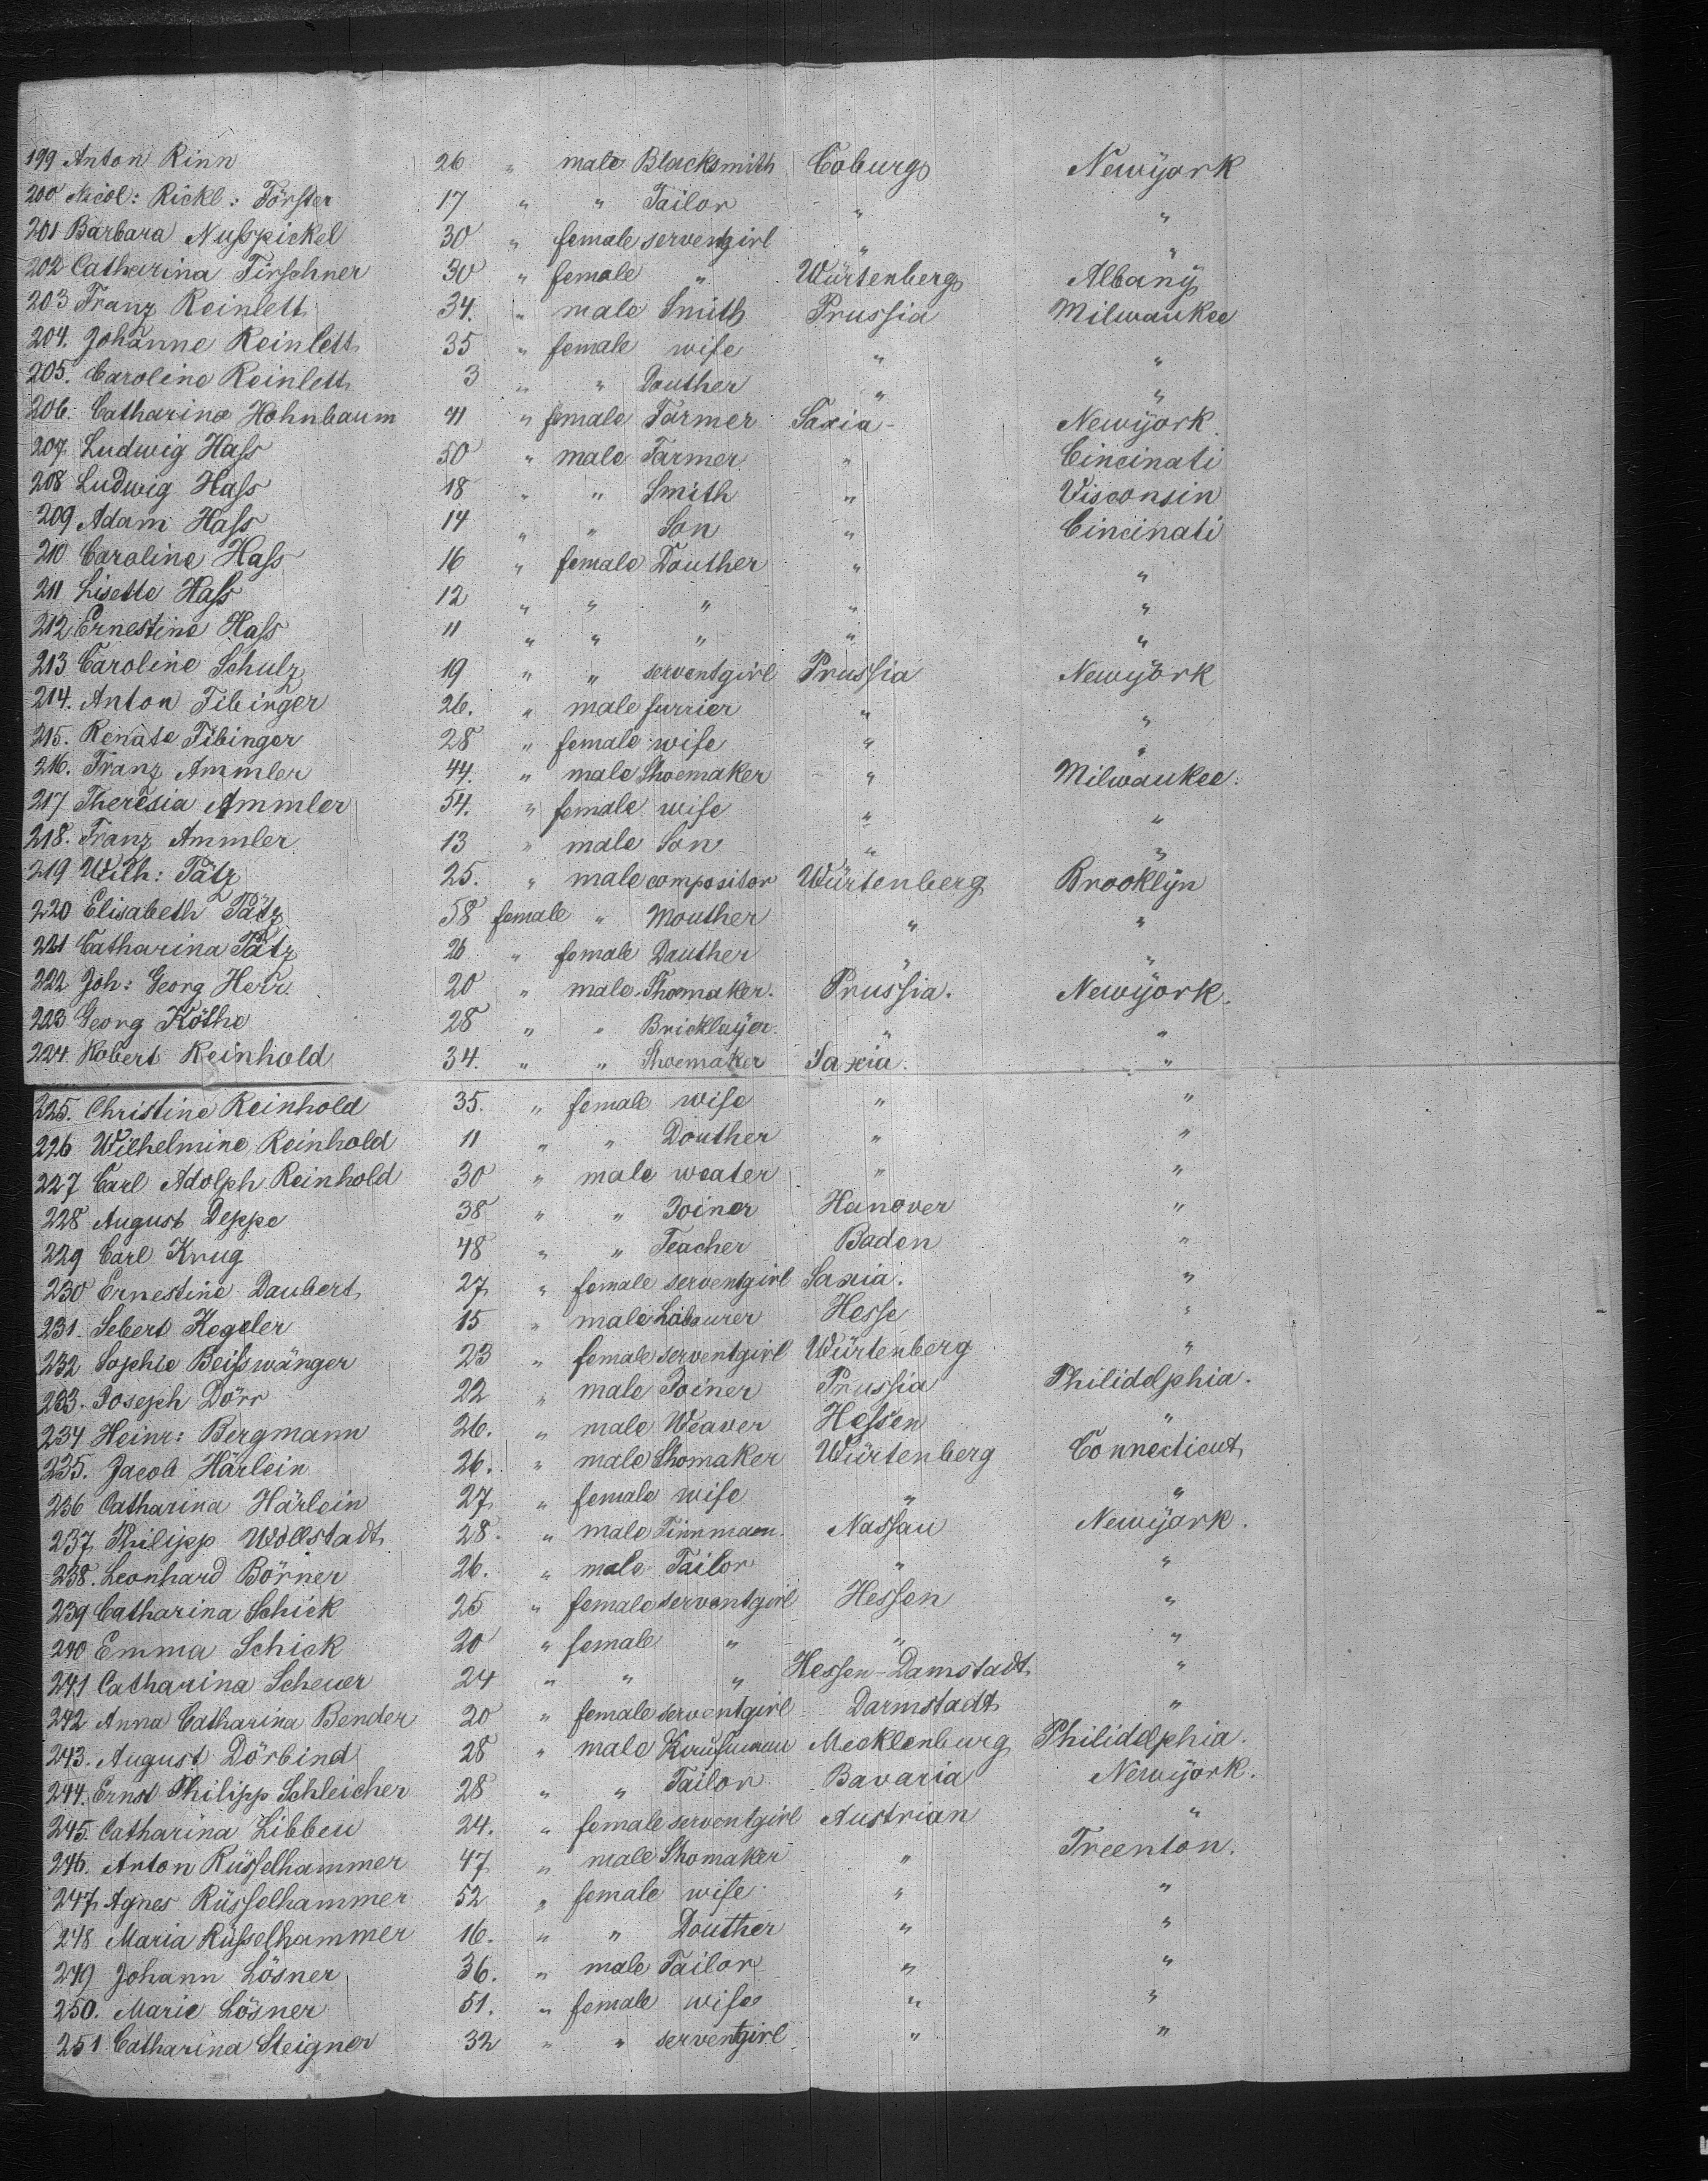 199 Anton Rinn 26 " male Blacksmith Coburg Newÿork
200 Nicol: Rickl: Förster 17 " " Tailor " "
201 Barbara Nußpickel 30 " female serventgirl " "
202 Catharina Tirschner 30 " female " Würtenberg Albanÿ
203 Franz Reinlett 34. " male Smith Prussia Milwaukee
204. Johanne Reinlett 35 " female wife " "
205. Caroline Reinlett 3 " " Douther " "
206. Catharina Hohnbaum 41 " female Farmer Saxia Newÿork.
207 Ludwig Haß 50 " male Farmer " Cincinati
208 Ludwig Haß 18 " " Smith " Visconsin
209 Adam Haß 14 " " Son " Cincinati
210 Caroline Haß 16 " female Douther " "
211 Lisette Haß 12 " " " " "
212 Ernestine Haß 11 " " " " "
213 Caroline Schulz 19 " " serventgirl Prussia Newÿork
214. Anton Fibinger 26. " male furrier " "
215. Renate Fibinger 28 " female wife " "
216. Franz Ammler 44. " male Shoemaker " Milwaukee.
217 Theresia Ammler 54. " female wife " "
218. Franz Ammler 13 " male Son " "
219 Wilh: Pätz 25. " male compositor Würtenberg Brooklÿn
220 Elisabeth Pätz 58 female " Mouther " "
221 Catharina Pätz 26 " female Dauther " "
222 Joh: Georg Herr. 20 " male Shomaker. Prussia. Newÿork.
223 Georg Köthe 28 " " Bricklaÿer. " "
224. Robert Reinhold 34. " " Shoemaker Saxia. "
225. Christine Reinhold 35. " female wife " "
226 Wilhelmine Reinhold 11 " " Douther " "
227 Carl Adolph Reinhold 30 " male weater " "
228 August Deppe 38 " " Joiner Hanover "
229 Carl Krug 48 " " Teacher Baden "
230 Ernestine Daubert 27 " female serventgirl Saxia. "
231. Sebert Kegeler 15 " male Labourer Hesse "
232 Sophie Beißwänger 23 " female serventgirl Würtenberg "
233. Joseph Dörr 22 " male Joiner Prussia Philidelphia.
234 Heinr: Bergmann 26. " male Weaver Hessen "
235. Jacob Härlein 26. " male Shomaker Würtenberg Connecticut
236 Catharina Härlein 27 " female wife " "
237 Philipp Wollstadt 28. " male Tinnmaen. Nassau Newÿork.
238. Leonhard Börner 26. " male Tailor " "
239 Catharina Schick 25 " female serventgirl Hessen "
240 Emma Schick 20 " female " " "
241 Catharina Scheuer 24 " " " Hessen-Damstadt "
242 Anna Catharina Bender 20 " female serventgirl Darmstadt "
243. August Dörbind 28 " male Kaufman Mecklenburg Philidelphia.
244. Ernst Philipp Schleicher 28 " " Tailor Bavaria Newÿork.
245. Catharina Libbeu 24. " female serventgirl Austrian "
246. Anton Rüsselhammer 47 " male Shomaker " Treenton.
247 Agnes Rüsselhammer 52 " female wife " "
248 Maria Rüsselhammer 16. " " Douther " "
249 Johann Lösner 36. " male Tailor " "
250. Marie Lösner 51. " female wife " "
251 Catharina Steigner 32 " " serventgirl " "